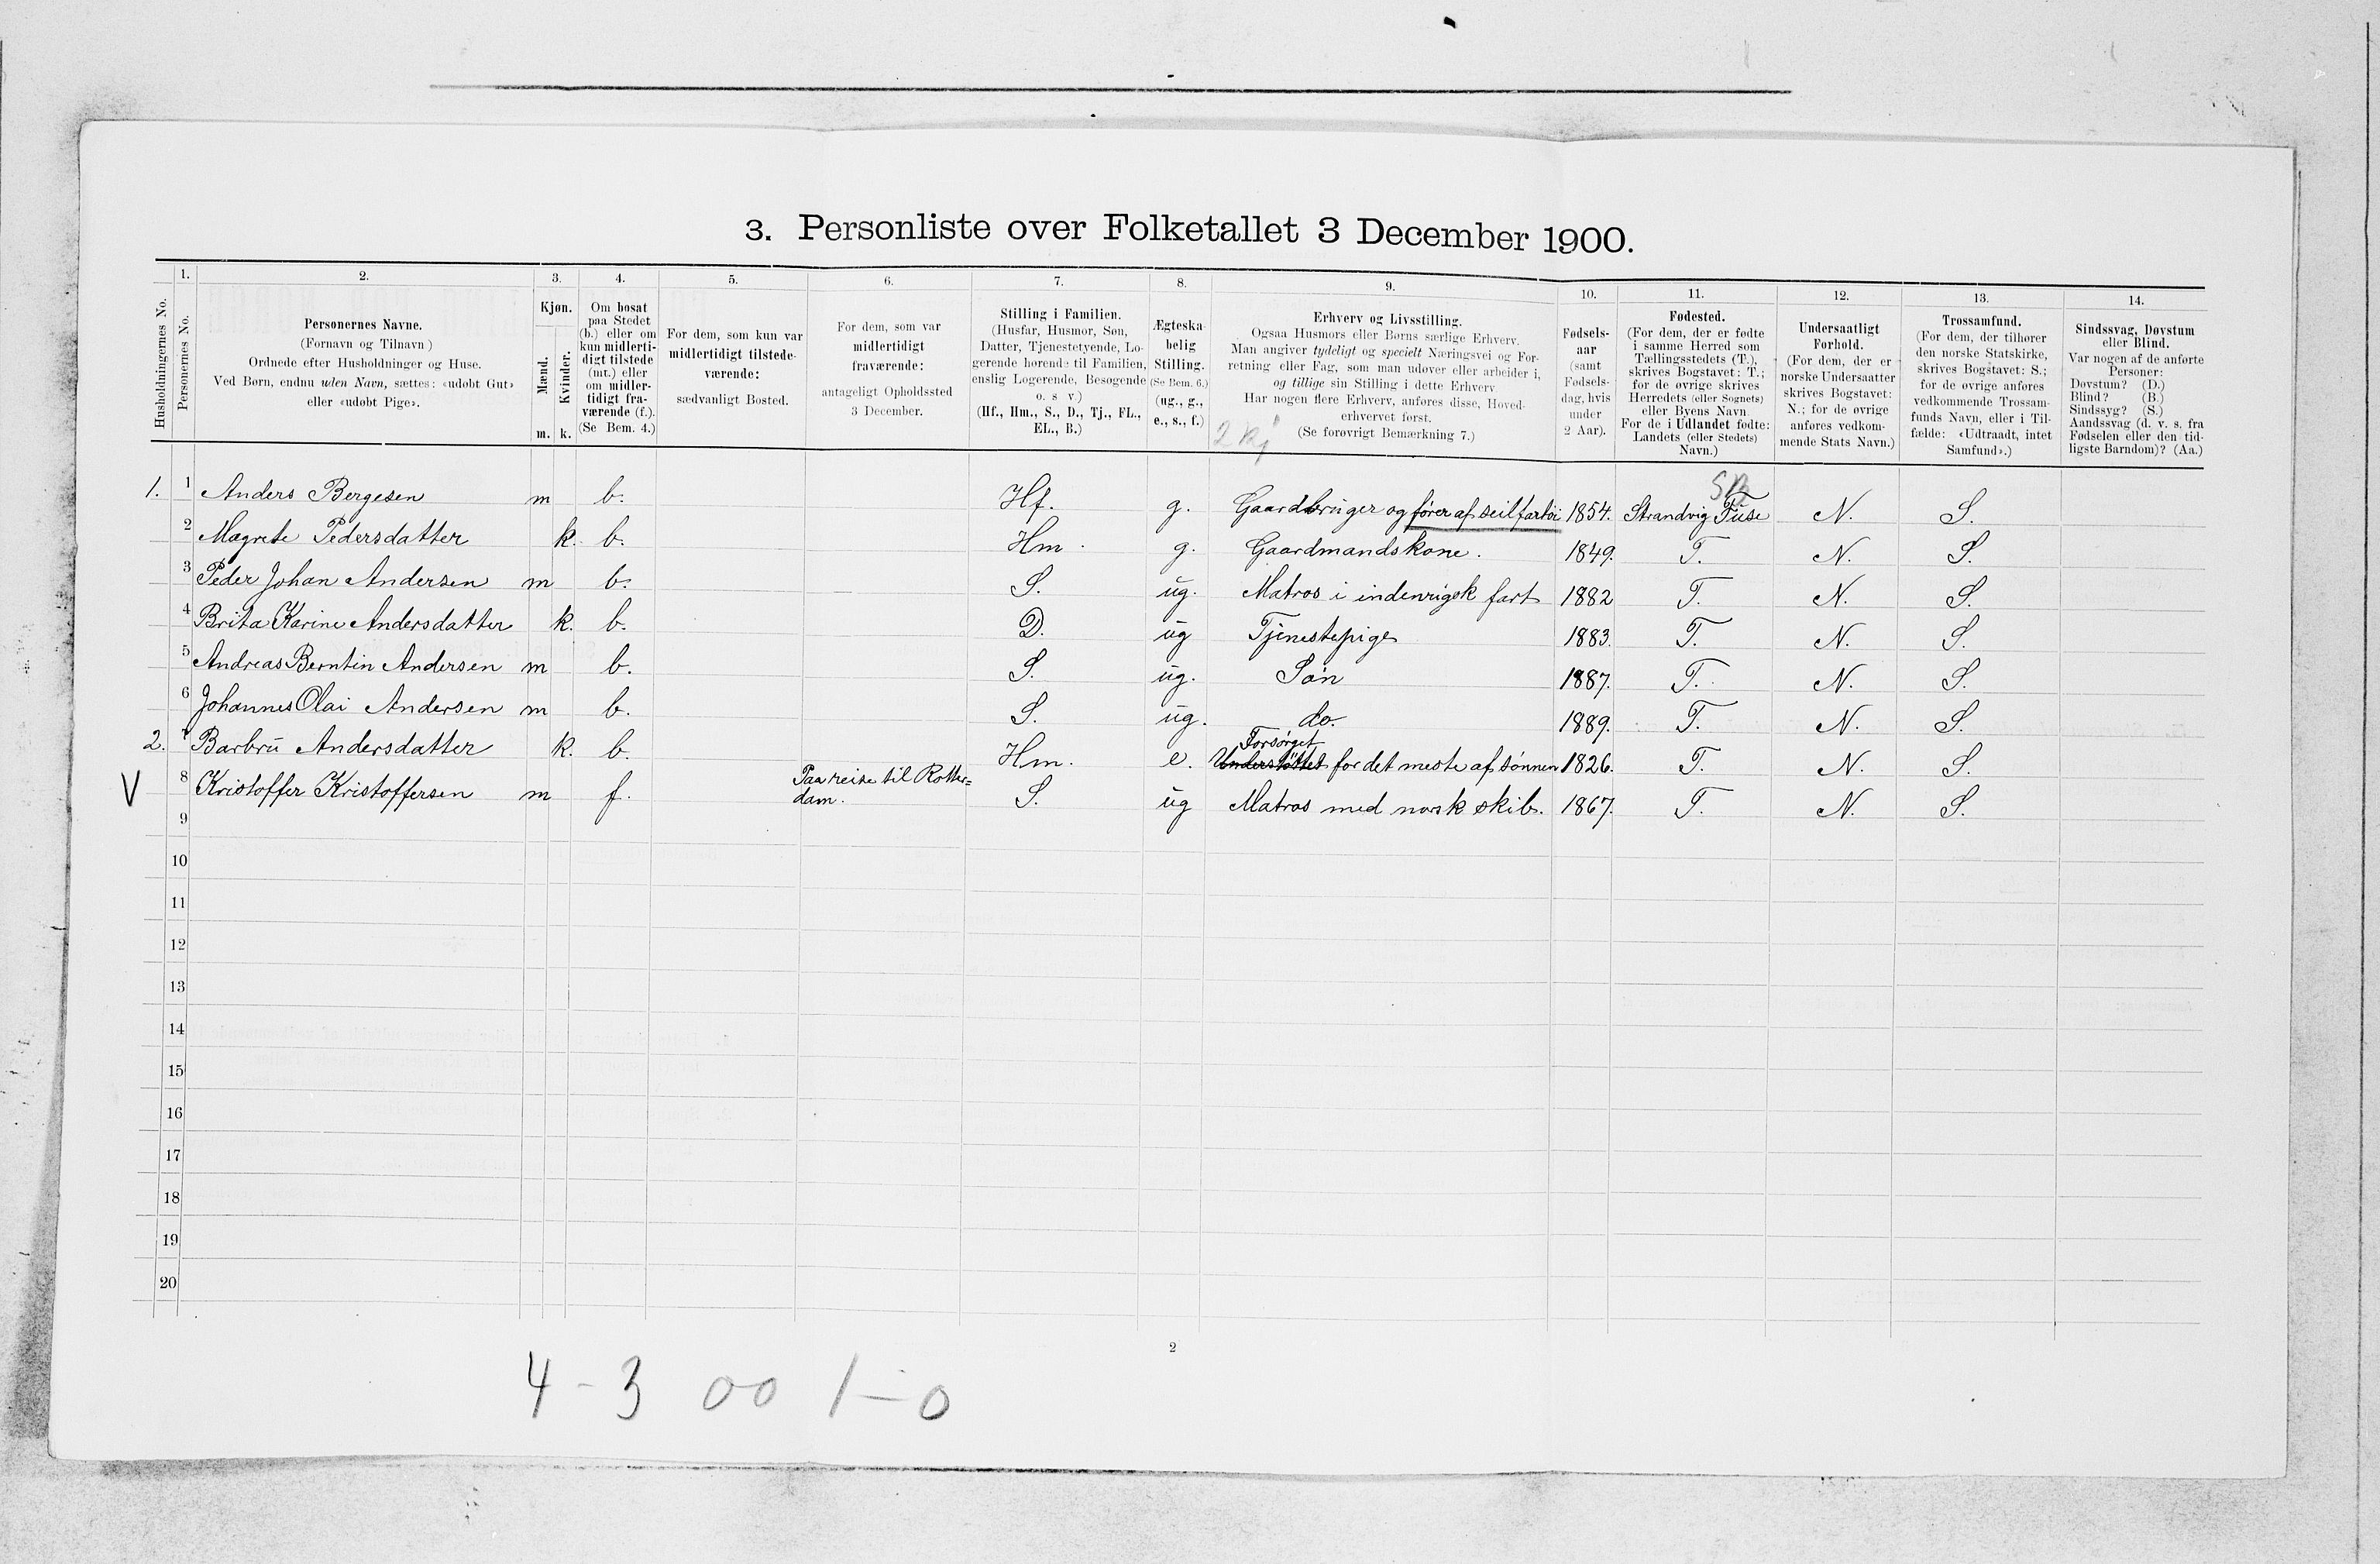 3. Personliste over Folketallet 3 December 1900.
Husholdningernes No.
1.
Personernes No.
2.
Personernes Navne.
(Fornavn og Tilnavn)
Ordnede efter Husholdninger og Huse.
Ved Børn, endnu uden Navn, sættes: «udøbt Gut»
eller «udøbt Pige».
3.
Kjøn.
Mænd.
Kvinder.
m. k.
4.
Om bosat
paa Stedet
(b.) eller om
kun midlerti-
digt tilstede
(mt.) eller
om midler-
tidigt fra-
værende (f.).
(Se Bem. 4.)
5.
For dem, som kun var
midlertidigt tilstede-
værende:
sædvanligt Bosted.
6.
For dem, som var
midlertidigt
fraværende:
antageligt Opholdssted
3 December.
7.
Stilling i Familien.
(Husfar, Husmor, Søn,
Datter, Tjenestetyende, Lo-
gerende hørende til Familien,
enslig Logerende, Besøgende
o. s v.)
(Hf., Hm., S., D., Tj., FL.,
EL., B.)
8.
Ægteska-
belig
Stilling.
(Se Bem. 6.)
(ug., g.,
e., s., f.)
9.
Erhverv og Livsstilling.
Ogsaa Husmors eller Børns særlige Erhverv.
Man angiver tydeligt og specielt Næringsvei og For-
retning eller Fag, som man udøver eller arbeider i,
og tillige sin Stilling i dette Erhverv
Har nogen flere Erhverv, anføres disse, Hoved-
erhvervet først.
(Se forøvrigt Bemærkning 7.)
10.
Fødsels-
aar
(samt
Fødsels-
dag, hvis
under
2 Aar).
11.
Fødested.
(For dem, der er fødte
i samme Herred som
Tællingsstedets (T.),
skrives Bogstavet: T.;
for de øvrige skrives
Herredets (eller Sognets)
eller Byens Navn
For de i Udlandet fødte:
Landets (eller Stedets)
Navn.)
12.
Undersaatligt
Forhold.
(For dem, der er
norske Undersaatter
skrives Bogstavet:
N.; for de øvrige
anføres vedkom-
mende Stats Navn.)
13.
Trossamfund.
(For dem, der tilhører
den norske Statskirke,
skrives Bogstavet: S.;
for de øvrige anføres
vedkommende Trossam-
funds Navn, eller i Til-
fælde: «Udtraadt, intet
Samfund».)
14.
Sindssvag, Døvstum
eller Blind.
Var nogen af de anførte
Personer:
Døvstum? (D.)
Blind? (B.)
Sindssyg? (S.)
Aandssvag (d. v. s. fra
Fødselen eller den tid-
ligste Barndom)? (Aa.)
2 kj
SB
1. 1 Anders Bergesen m b. Hf. g. Gaardbruger og fører af seilfartøi 1854. Strandvig Fuse N. S.
2 Magrete Pedersdatter k. b. Hm. g. Gaardmandskone. 1849. T. N. S.
3 Peder Johan Andersen m b. S. ug. Matros i indenrigsk fart 1882 T. N. S.
4 Brita Karine Andersdatter k. b. D. ug Tjenestepige 1883. T. N. S.
5 Andreas Berntin Andersen m b. S. ug. Søn 1887. T. N. S.
6 Johannes Olai Andersen m b. S. ug. do. 1889. T. N. S.
Forsørget
2. 7 Barbru Andersdatter k. b. Hm. e. Understøttet for det meste af sønnen 1826. T. N. S.
V 8 Kristoffer Kristoffersen m f. Paa reise til Rotter=
dam. S. ug Matros med norsk skib. 1867. T. N. S.
9
10
11
12
13
14
15
16
17
18
19
20
2
4 - 3 00 1 - 0